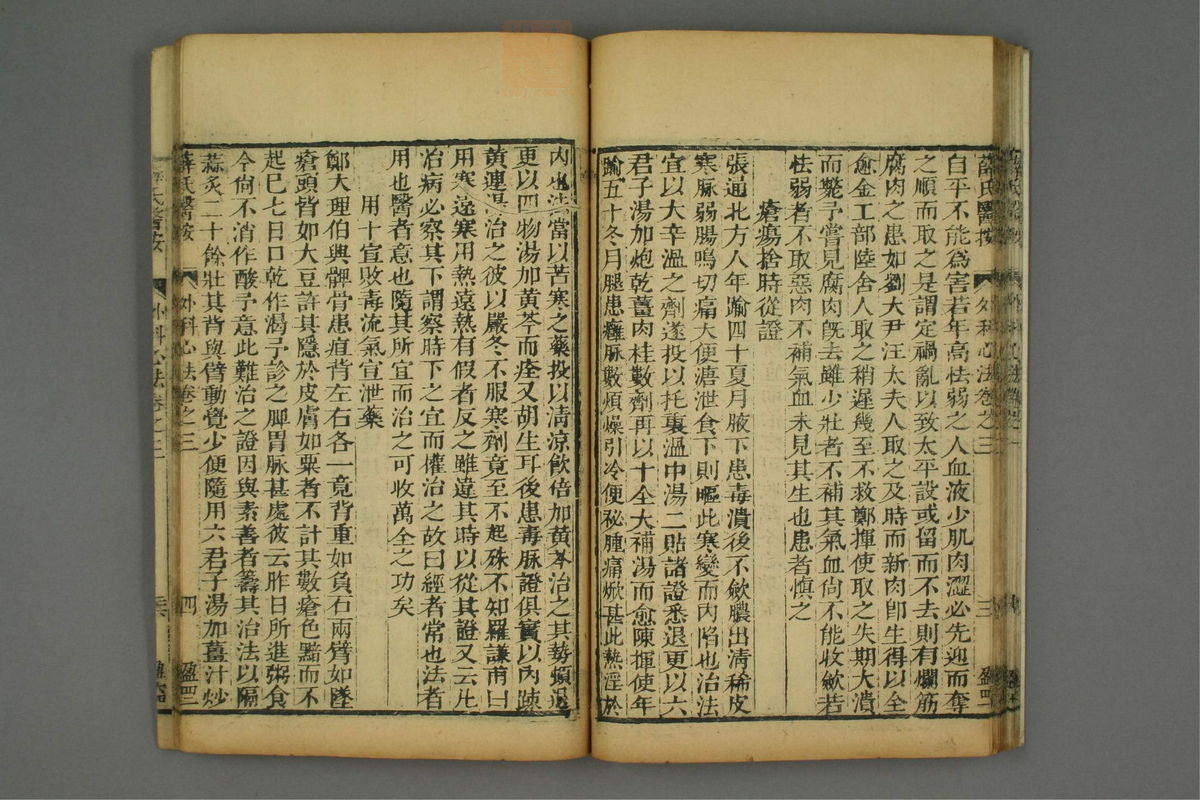 薛氏醫按 外科心法卷之三 三 盈四二
白平不能爲害若年高怯弱之人血液少肌肉澀必先迎而奪
之順而取之是謂定禍亂以致太平設或留而不去則有爛筋
腐肉之患如劉大尹汪太夫人取之及時而新肉卽生得以全
愈金工部陸舍人取之稍遲幾至不救鄭揮使取之失期大潰
而斃予嘗見腐肉旣去雖少壯者不補其氣血尙不能收斂若
怯弱者不取惡肉不補氣血未見其生也患者慎之
瘡瘍捨時從證
張通北方人年踰四十夏月腋下患毒潰後不斂膿出淸稀皮
寒脉弱腸鳴切痛大便溏泄食下則嘔此寒變而內陷也治法
宜以大辛溫之劑遂投以托裏溫中湯二貼諸證悉退更以六
君子湯加炮乾薑肉桂數劑再以十全大補湯而愈陳揮使年
踰五十冬月腿患癰脉數煩燥引冷便秘腫痛焮甚此熱淫於
內也法當以苦寒之藥投以淸涼飲倍加黃芩治之其勢頓退
更以四物湯加黃芩而痊又胡生耳後患毒脉證俱實以內疎
黃連湯治之彼以嚴冬不服寒劑竟至不起殊不知羅謙甫曰
用寒遠寒用熱遠熱有假者反之雖違其時以從其證又云凡
治病必察其下謂察時下之宜而權治之故曰經者常也法者
用也醫者意也隨其所宜而治之可收萬全之功矣
用十宣敗毒流氣宣泄藥
鄭大理伯與髀骨患疽背左右各一竟背重如負石兩臂如墜
瘡頭皆如大豆許其隱於皮膚如粟者不計其數瘡色黯而不
起巳七日口乾作渴予診之脾胃脉甚處彼云昨日所進粥食
今尙不消作酸予意此難治之證因與素善者籌其治法以隔
蒜炙二十餘壯其背與臂動覺少便隨用六君子湯加薑汁炒
薛氏醫按 外科心法卷之三 四 盈四三